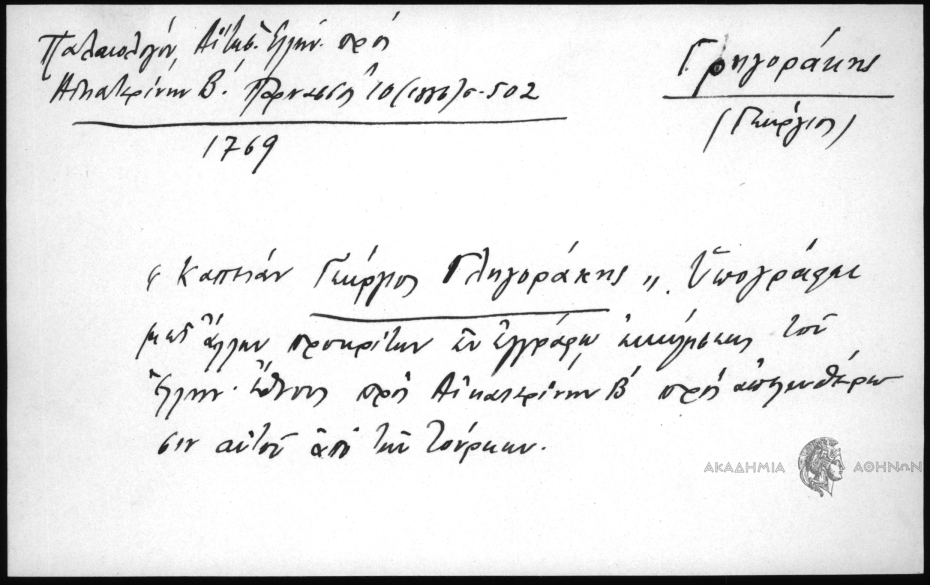 Παλαιολόγου, Αἴτησ. Ἑλλήν. πρὸς
Αἰκατερίνην Β΄. Παρνασσός 10 (1886) σ. 502
1769
Γρηγοράκης
(Γεώργιος)
"Καπετάν Γεώργιος Γληγοράκης". Ὑπογράφει
μετ' ἄλλων προκρίτων ἐν ἐγγράφῳ ἐκκλήσεως τοῦ
Ἑλλην. Ἔθνους πρὸς Αἰκατερίνην Β΄ πρὸς ἀπελευθέρω
σιν αὐτοῦ ἀπὸ τῶν Τούρκων.
ΑΚΑΔΗΜΙΑ ΑΘΗΝΩΝ